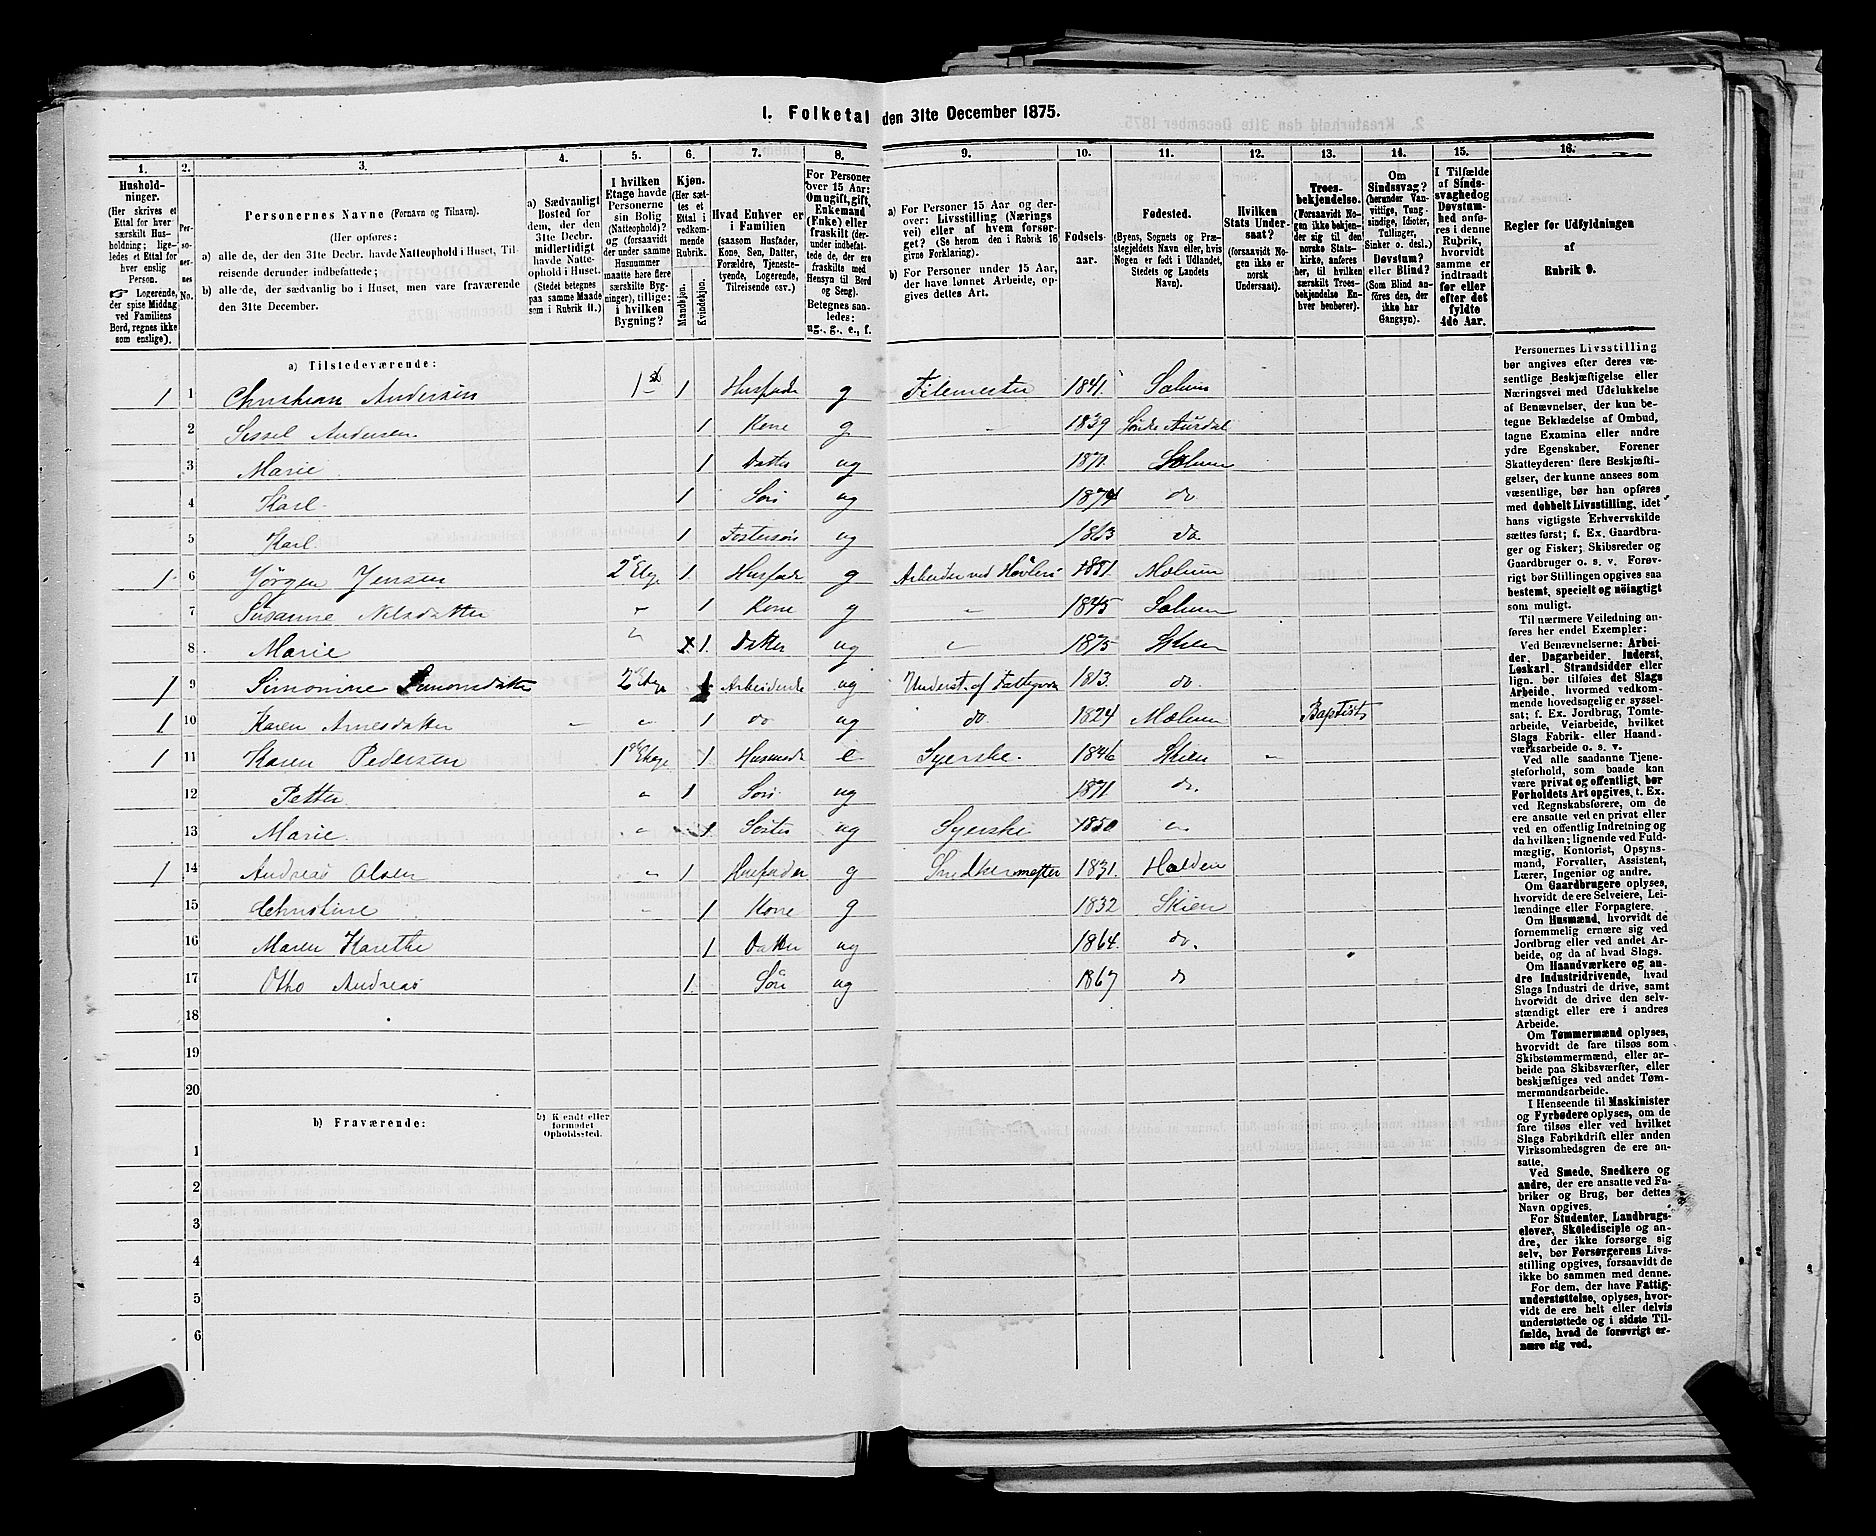 1. Folketal den 31te December 1875.
1. 2. 3. 4. 5. 6. 7. 8. 9. 10. 11. 12. 13. 14. 15. 16.
Hushold-
ninger.
(Her skrives et
Ettal for hver
særskilt Hus-
holdning; lige-
ledes et Ettal for
hver enslig
Person.
☞ Logerende,
der spise Middag
ved Familiens
Bord, regnes ikke
som enslige).
Per-
so-
ner-
nes
No.
Personernes Navne (Fornavn og Tilnavn).
(Her opføres:
a) alle de, der den 31te Decbr. havde Natteophold i Huset, Til-
reisende derunder indbefattede;
b) alle de, der sædvanlig bo i Huset, men vare fraværende
den 31te December.
a) Sædvanligt
Bosted for
dem, der den
31te Decbr.
midlertidigt
havde Natte-
ophold i Huset.
(Stedet betegnes
paa samme Maade
som i Rubrik 11.)
I hvilken
Etage havde
Personerne
sin Bolig
(Natteophold)?
og (forsaavidt
der under samme
Husnummer
maatte høre flere
særskilte Byg-
ninger), tillige:
i hvilken
Bygning?
Kjøn.
(Her sæt-
tes et
Ettal i
vedkom-
mende
Rubrik.
Mandkjøn.
Kvindekjøn.
Hvad Enhver er
i Familien
(saasom Husfader,
Kone, Søn, Datter,
Forældre, Tjeneste-
tyende, Logerende,
Tilreisende osv.)
For Personer
over 15 Aar:
Om ugift, gift,
Enkemand
(Enke) eller
fraskilt (der-
under indbefat-
tede de, der ere
fraskilte med
Hensyn til Bord
og Seng).
Betegnes saa-
ledes:
ug., g., e., f.
a) For Personer 15 Aar og der-
over: Livsstilling (Nærings
vei) eller af hvem forsør-
get? (Se herom den i Rubrik 16
givne Forklaring).
b) For Personer under 15 Aar,
der have lønnet Arbeide, op-
gives dettes Art.
Fødsels-
aar.
Fødested.
(Byens, Sognets og Præ-
stegjeldets Navn eller, hvis
Nogen er født i Udlandet,
Stedets og Landets
Navn).
Hvilken
Stats Under-
saat?
(forsaavidt No-
gen ikke er
norsk
Undersaat).
Troes-
bekjendelse.
(Forsaavidt No-
gen ikke bekjen-
der sig til den
norske Stats-
kirke, anføres
her, til hvilken
særskilt Troes-
bekjendelse En-
hver henhører).
Om
Sindssvag?
(herunder Van-
vittige, Tung-
sindige, Idioter,
Tullinger,
Sinker o. desl.)
Døvstum?
eller Blind?
(Som Blind an-
føres den, der
ikke har
Gangsyn).
I Tilfælde
af Sinds-
svaghed og
Døvstum-
hed anfø-
res i denne
Rubrik,
hvorvidt
samme er
indtraadt
før eller
efter det
fyldte
4de Aar.
Regler for Udfyldningen
af
Rubrik 9.
a) Tilstedeværende:
1 1 Christian Andersen 1st 1 Husfader g Filemester 1841. Solum
2 Sissel Andersen 1 Kone g „ 1839 Søndre Aurdal
3 Marie 1 Datter ug 1871. Solum
4 Karl. 1 Søn ug 1874 do
5 Karl. 1 Fostersøn ug 1863 do.
1 6 Jörgen Jensen 2 Etage 1 Husfader g Arbeider ved Høvleri Mælum
7 Susanne Nilsdatter „ 1 Kone g „ 1845 Solum
8 Marie „ 1. Datter ug „ 1875 Skien
1 9 Simonine Simonsdatter 2 Etage 1 Arbeidende ug Underst. af Fattigvæs 1813. do.
1 10 Karen Arnesdatter „ „ 1 do ug do 1824 Mælum Baptist
1 11 Karen Pedersen 1 Etage 1 Husmoder e. Syerske. 1846 Skien „
12 Petter „ 1 Søn. ug 1871 do.
13 Marie. „ 1. Søster ug Syerske 1850 „
1 14 Andreas Olsen „ 1 Husfader g Snedkermester 1831. Halden
15 Christine „ 1 Kone g 1832 Skien
16 Maren Karethe 1 Datter ug 1864. do.
17 Otho Andreas 1. Søn ug 1867 do
18
19
20
b) Fraværende:
b) Kjendt eller
formodet
Opholdssted.
1
2
3
4
5
6
Personernes Livsstilling
bør angives efter deres væ-
sentlige Beskjæftigelse eller
Næringsvei med Udelukkelse
af Benævnelser, der kun be-
tegne Beklædelse af Ombud,
tagne Examina eller andre
ydre Egenskaber. Forener
Skatteyderen flere Beskjæfti-
gelser, der kunne ansees som
væsentlige, bør han opføres
med dobbelt Livsstilling, idet
hans vigtigste Erhvervskilde
sættes først; f. Ex. Gaardbru-
ger og Fisker; Skibsreder og
Gaardbruger o. s. v. Forøv-
rigt bør Stillingen opgives saa
bestemt, specielt og nöiagtigt
som muligt.
Til nærmere Veiledning an-
føres her endel Exempler:
Ved Benævnelserne: Arbei-
der, Dagarbeider, Inderst,
Løskarl, Strandsidder eller
lign. bør tilføies det Slags
Arbeide, hvormed vedkom-
mende hovedsagelig er syssel-
sat; f. Ex. Jordbrug, Tomte-
arbeide, Veiarbeide, hvilket
Slags Fabrik- eller Haand-
værksarbeide o. s. v.
Ved alle saadanne Tjene-
steforhold, som baade kan
være privat og offentligt, bør
Forholdets Art opgives, t. Ex.
ved Regnskabsførere, om de
ere ansatte ved en privat eller
ved en offentlig Indretning og
da hvilken; lignende ved Fuld-
mægtig, Kontorist, Opsyns-
mand, Forvalter, Assistent,
Lærer, Ingeniør og andre.
Om Gaardbrugere oplyses,
hvorvidt de ere Selveiere, Lei-
lændinge eller Forpagtere.
Om Husmænd, hvorvidt de
fornemmelig ernære sig ved
Jordbrug eller ved andet Ar-
beide, og da af hvad Slags.
Om Haandværkere og an-
dre Industridrivende, hvad
Slags Industri de drive, samt
hvorvidt de drive den selv-
stændigt eller ere i andres
Arbeide.
Om Tømmermænd oplyses,
hvorvidt de fare tilsøs som
Skibstømmermænd, eller ar-
beide paa Skibsværfter, eller
beskjæftiges ved andet Tøm-
mermandsarbeide.
I Henseende til Maskinister
og Fyrbødere oplyses, om de
fare tilsøs eller ved hvilket
Slags Fabrikdrift eller anden
Virksomhedsgren de ere an-
satte.
Ved Smede, Snedkere og
andre, der ere ansatte ved Fa-
briker og Brug, bør dettes
Navn opgives.
For Studenter, Landbrugs-
elever, Skoledisciple og an-
dre, der ikke forsørge sig
selv, bør Forsørgerens Livs-
stilling opgives, forsaavidt de
ikke bo sammen med denne.
For dem, der have Fattig-
understøttelse, oplyses, hvor-
vidt de ere helt eller delvis
understøttede og i sidste Til-
fælde, hvad de forøvrigt er-
nære sig ved.